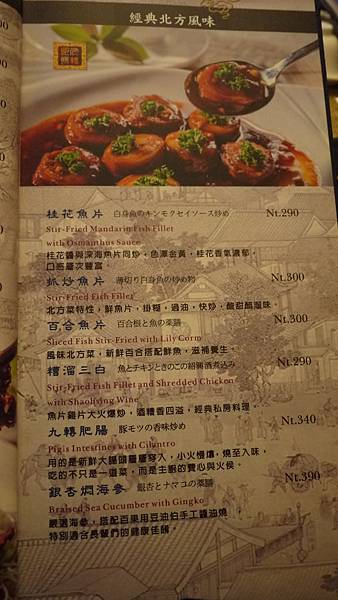 經典北方風味
桂花魚片 白身魚のキンモクセイソース炒め Nt.290
Stir-Fried Mandarin Fish Fillet
with Osmanthus Sauce
桂花醬與深海魚片同炒，色澤金黃，桂花香氣濃郁，
口感層次豐富。
抓炒魚片 薄切り白身魚の炒め物 Nt.300
Stir-Fried Fish Fillet
北方菜特性，鮮魚片，掛糊，過油，快炒，酸甜醋溜味。
百合魚片 百合根と魚の薬膳 Nt.300
Sliced Fish Stir-Fried with Lily Corm
風味北方菜，新鮮百合搭配鮮魚，滋補養生。
糟溜三白 魚とチキンときのこの紹興酒煮込み Nt.290
Stir-Fried Fish Fillet and Shredded Chicken
with Shaoljxing Wine
魚片雞片大火爆炒，酒糟香四溢，經典私房料理。
九轉肥腸 豚モツの香味炒め Nt.340
Pigis Intestines with Cilantro
用的是新鮮大腸頭層層穿入，小火慢燉，燒至入味，
吃的不只是一道菜，而是主廚的費心與火侯。
銀杏燜海參 銀杏とナマコの薬膳 Nt.390
Braised Sea Cucumber with Gingko
嚴選海參，搭配百果用豆油伯手工醬油燒，
特別適合長輩們的健康佳餚。